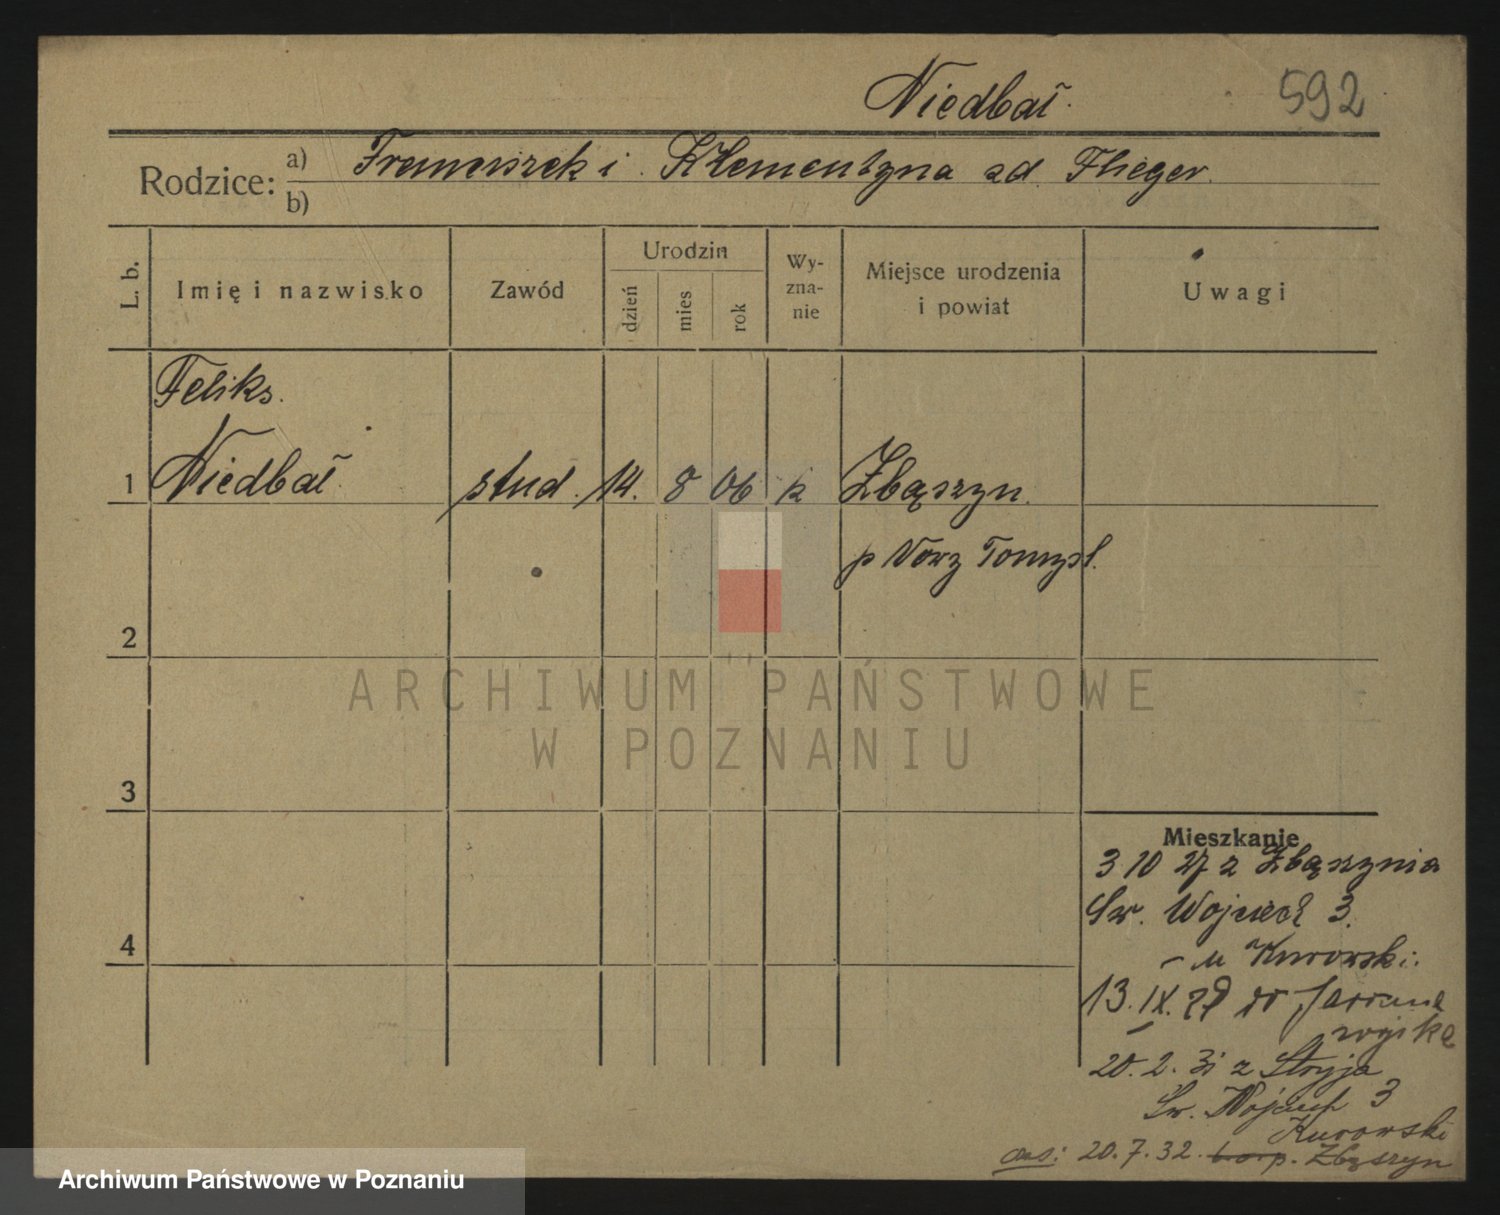 Niedbał
592
Rodzice: a) Franciszek i Klementyna zd. Flieger.
b)
L. b. Imię i nazwisko Zawód Urodzin dzień mies rok Wy-zna-nie Miejsce urodzenia i powiat Uwagi
Feliks.
1 Niedbał stud. 14. 8 06 k Zbąszyn.
p Nowy Tomyśl.
2
ARCHIWUM PAŃSTWOWE
W POZNANIU
3
Mieszkanie
3 10 27 z Zbąszynia
Św. Wojciech 3.
4
- u Kurowski.
13. IX. do
wojska
20. 2. 31 z Stryja
Św. Wojciech 3
Kurowski
20. 7. 32. Zbąszyn
Archiwum Państwowe w Poznaniu